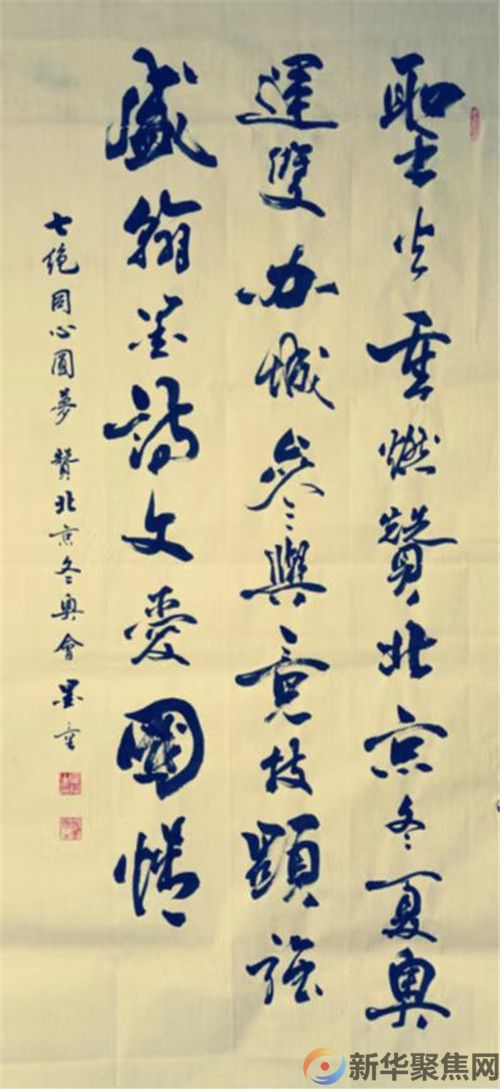 聖火重燃贊北京冬夏奧
運雙办城參與竞技顯強
盛翰墨詩文愛國情
七绝同心圓夢 贊北京冬奧會 墨
新华聚焦网